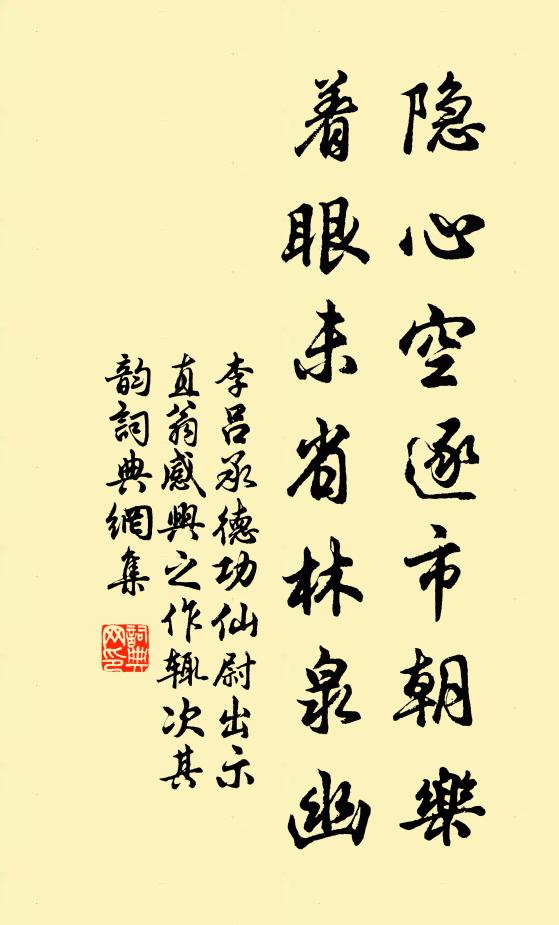 隐心空逐市朝樂
着眼未省林泉幽
李吕承德功仙尉出示
直翁感興之作辄次其
韵詞典網集
詞典網印